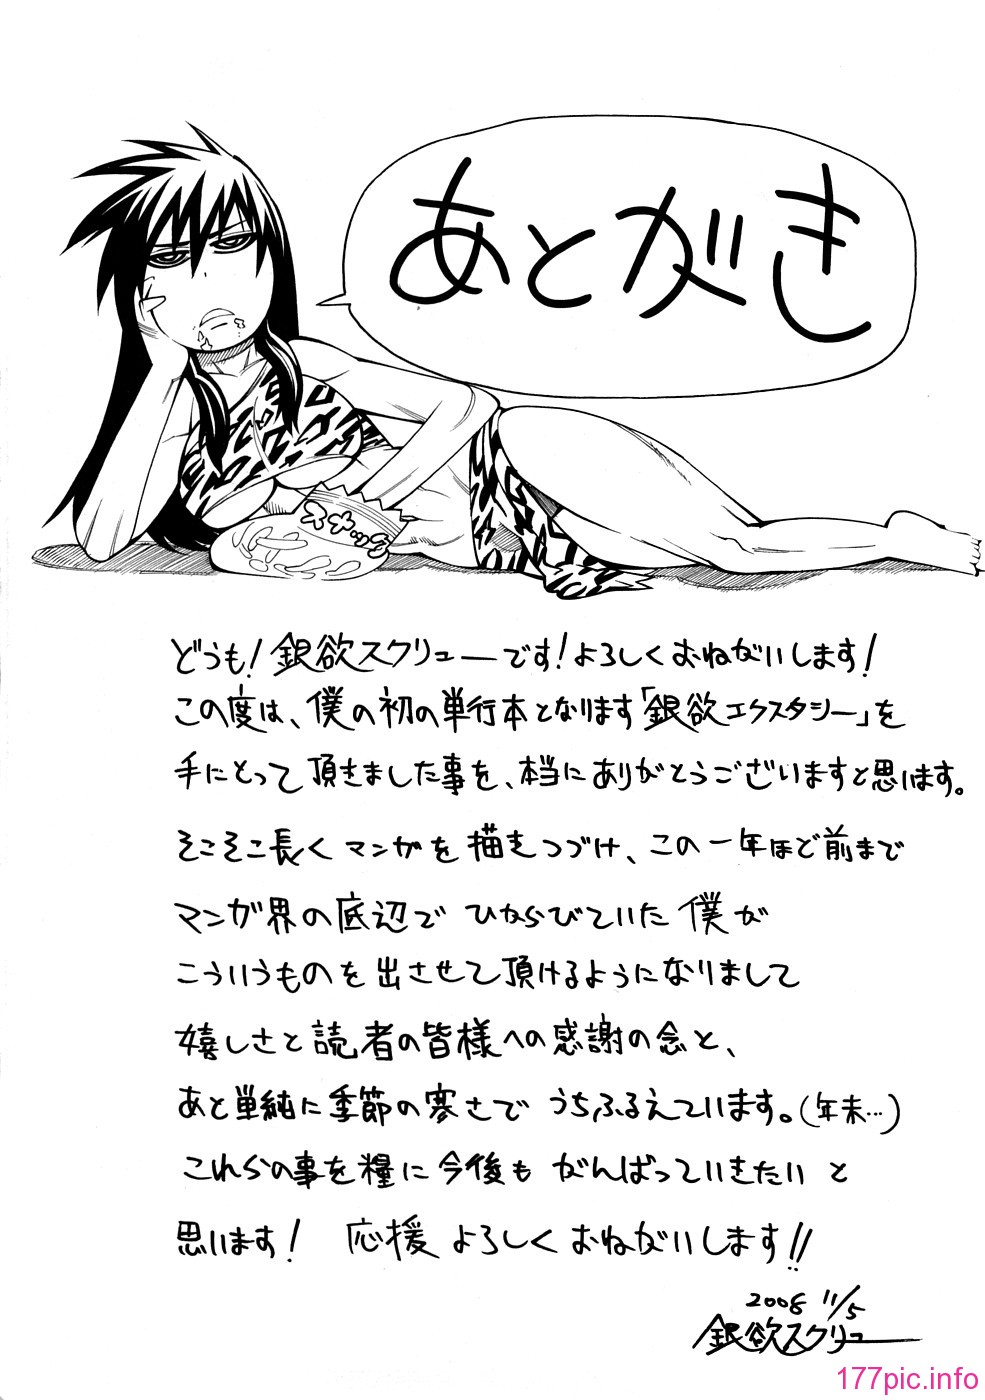 あとがき
スナック
どうも!銀欲スクリューです!よろしくおねがいします!
この度は、僕の初の単行本となります「銀欲エクスタシー」を
手にとって頂きました事を、本当にありがとうございますと思います。
そこそこ長くマンガを描きつづけ、この一年ほど前まで
マンガ界の底辺でひからびていた僕が
こういうものを出させて頂けるようになりまして
嬉しさと読者の皆様への感謝の念と、
あと単純に季節の寒さでうちふるえています。(年末…)
これらの事を糧に今後もがんばっていきたいと
思います! 応援よろしくおねがいします!!
2008 11/5
銀欲スクリュー
177pic.info